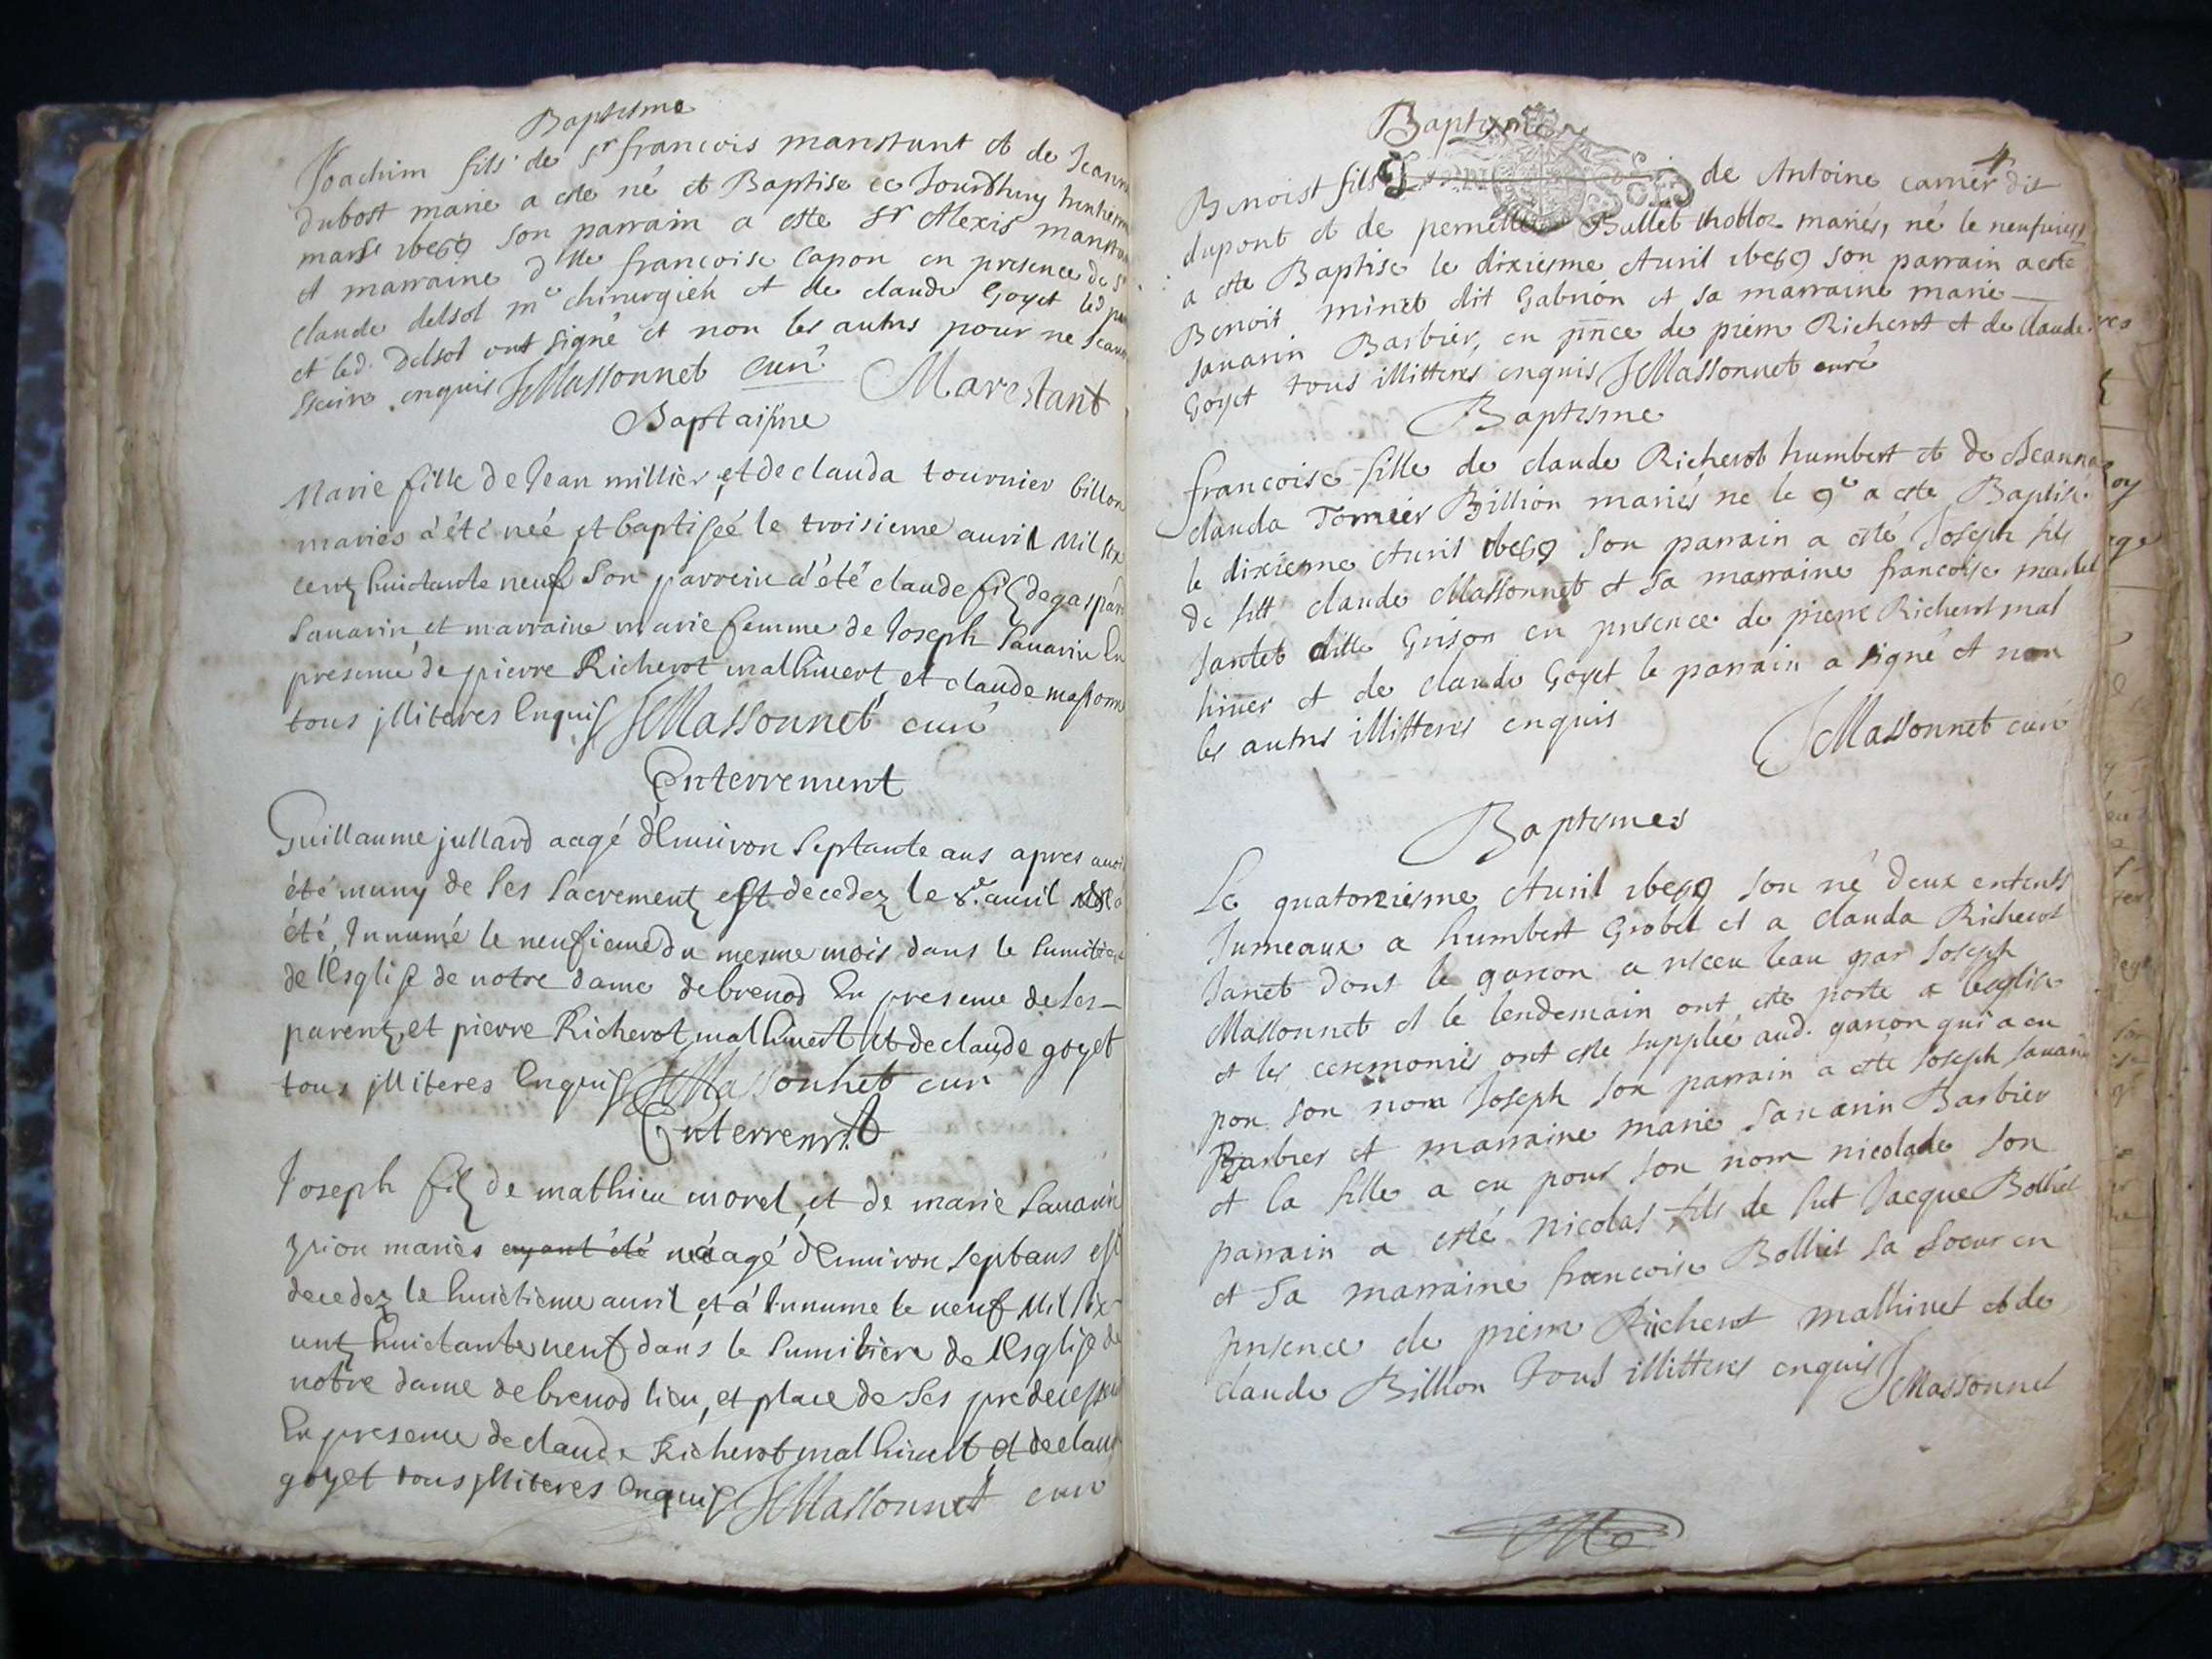 Baptesme
Joachim fils de sr francois marestant et de Jeanne
dubost marie a este né et Baptise ce Jourdhuy
mars 1689 son parrain a este sr Alexis
et marraine dlle francoise Capon en presence de sr
claude delsol me chirurgien et de claude Goyet led
et led. Delsol ont signé et non les autres pour ne
Escrire enquis JMassonnet curé Marestant
Baptaisme
Marie fille de Jean millier et de clauda tournier billon
mariés a été neé et baptiseé le troisieme auril Mil six
centz huictante neuf son parrein a été claude filz de gaspar
Sauarin et marraine marie femme de Joseph Sauarin En
presence de pierre Richerot malhiuert et claude massonne
tous jlliteres Enquis JMassonnet curé
Enterrement
Guillaume jullard aagé d'Enuiron septante ans apres auoir
été muny de ses sacrementz est decedez le 8e auril
été Innumé le neufieme du mesme mois dans le Sumitiere
de lEsglise de notre dame de brenod En presence de ses
parentz et pierre Richerot malhiuert et de claude goyet
tous jlliteres Enquis JMassonnet curé
Enterremt
Joseph filz de mathieu morel et de marie Sauarin
mariés ayant été aagé dEnuiron sept ans est
decedez le huictieme auril et a Innume le neuf Mil six
centz huictante neuf dans le Sumitiere de lEsglise de
notre dame de brenod lieu et place de ses predecesseur
En presence de claude Richerot malhiuert et de claude
goyet tous jlliteres Enquis JMassonnet curé
Baptesme
4
Benoist fils de Antoine carrier dit
dupont et de pernette Ballet mariés, né le
a este Baptise le dixiesme Auril 1689 son parrain a este
Benoit minet dit Gabrion et sa marraine marie
sauarin Barbier, en pnce de pierre Richerot et de claude
Goyet tous illitteres enquis JMassonnet curé
Baptesme
francoise fille de claude Richerot humbert et de Jeanne
clauda Tornier Billion mariés ne le 9e a este Baptisé
le dixieme Auril 1689 son parrain a esté Joseph fils
de claude Massonnet et sa marraine francoise
Jantet ditte Grison en presence de pierre Richerot mal
hiuer et de claude Goyet le parrain a signé et non
les autres illitteres enquis
JMassonnet curé
Baptesmes
Le quatorziesme Auril 1689 son né deux enfents
Jumeaux a humbert Grobel et a clauda Richerot
Janet dont le garcon a receu leau par Joseph
Massonnet et le lendemain ont este porte a leglise
et les ceremonies ont este supplée aud. garcon qui a eu
pour son nom Joseph son parrain a esté Joseph sauarin
Barbier et marraine marie sauarin Barbier
et la fille a eu pour son nom nicolade son
parrain a esté nicolas fils de fut Jacque Bolliet
et sa marraine francoise Bolliet sa soeur en
presence de pierre Richerot malhiuet et de
claude Billion tous illitteres enquis JMassonnet